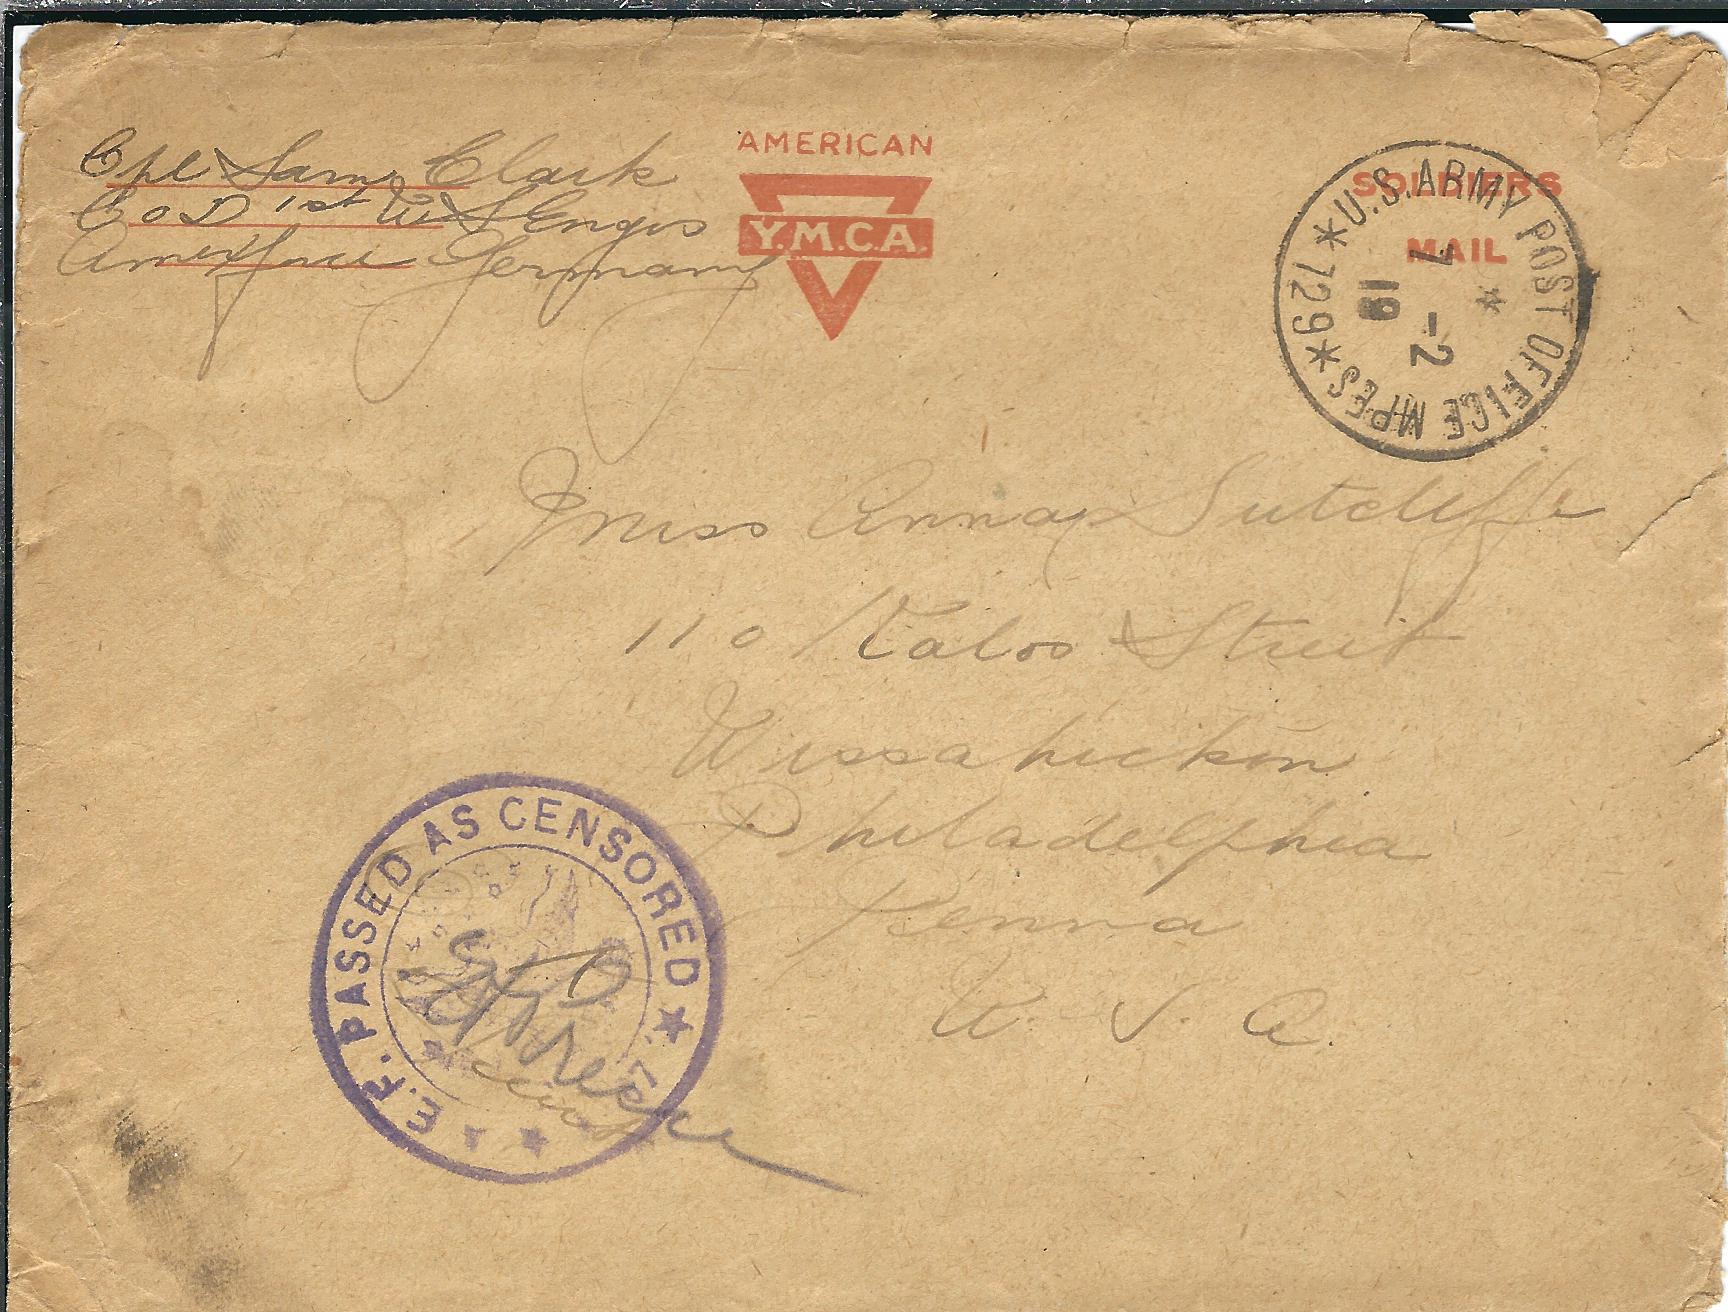 Cpl Sam Clark
Co D 1st U S Engrs
Amer Forces Germany
AMERICAN
Y.M.C.A.
SOLDIERS
MAIL
U.S. ARMY POST OFFICE MPES * 729 *
7
-2
19
Miss Anna Sutcliffe
110 Kalos Street
Wissahickon
Philadelphia
Penna
U. S. A.
A.E.F. PASSED AS CENSORED